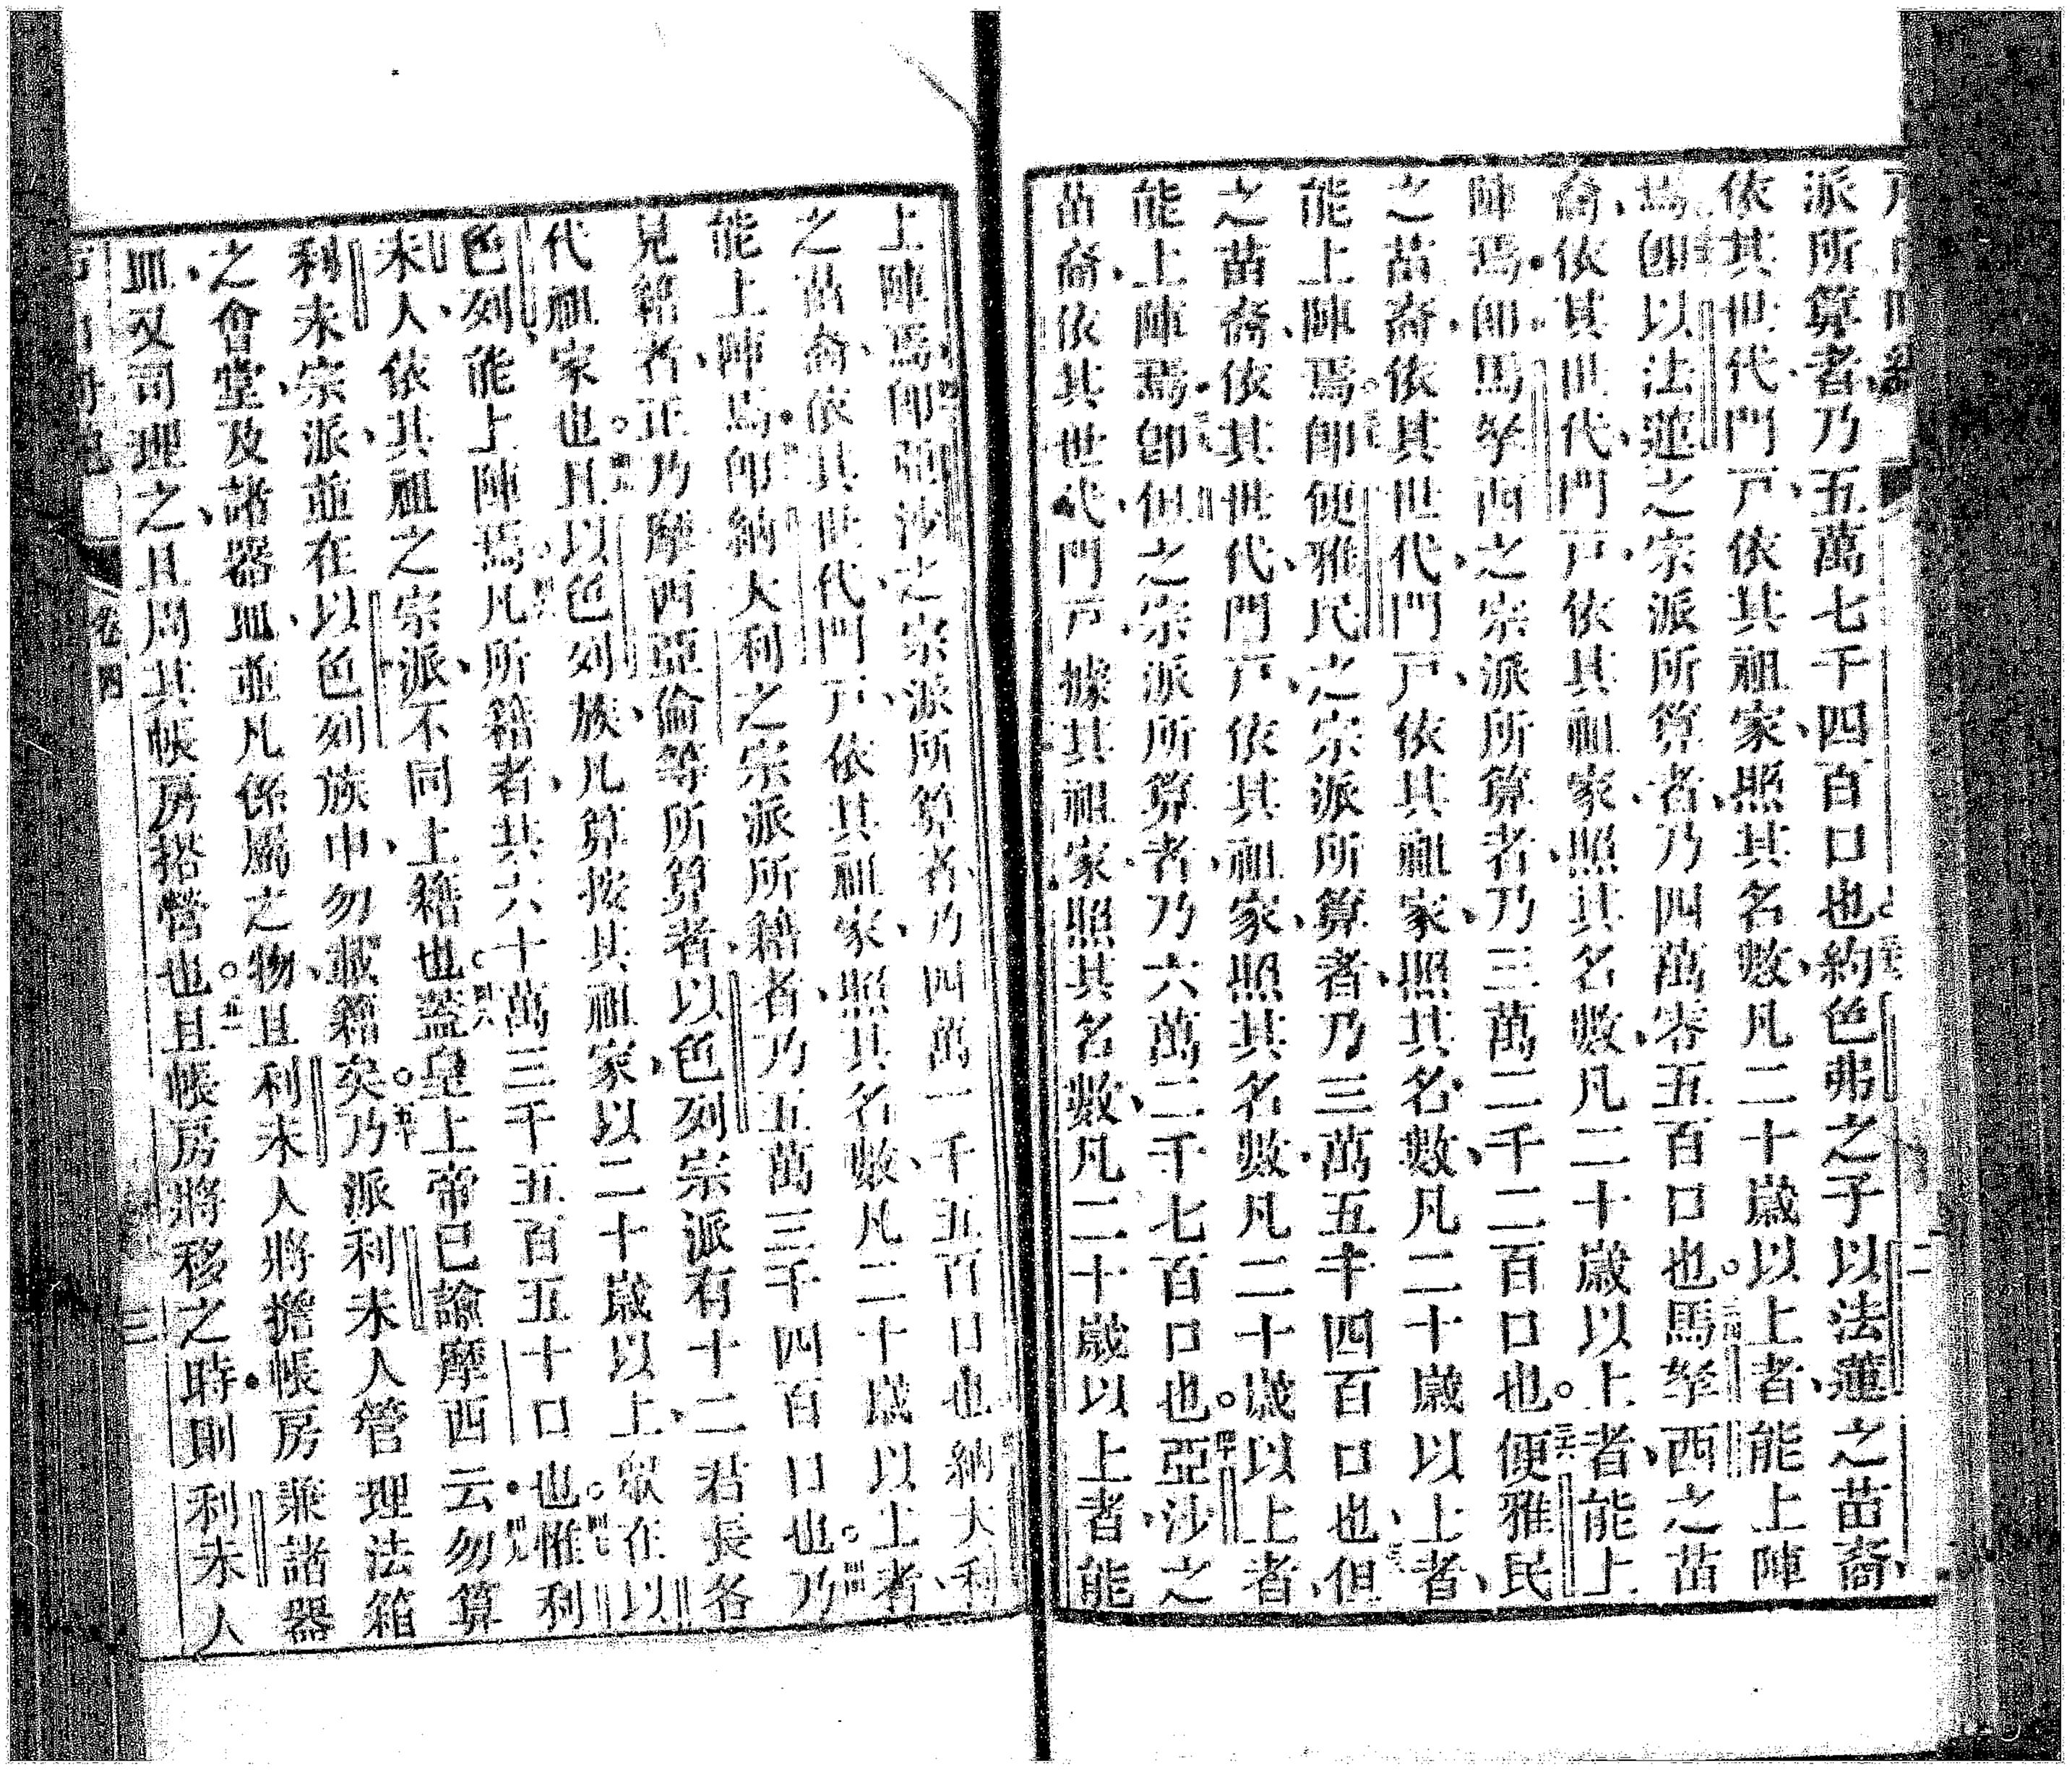 派所算者、乃五萬七千四百口也約色弗之子以法蓮之苗裔、
依其世代門戸、依其祖家、照其名數、凡二十歲以上者、能上陣
焉卽以法蓮之宗派所算者、乃四萬零五百口也。馬拏西之苗
裔、依其世代、門戸、依其祖家、照其名數、凡二十歲以上者、能上
陣焉、卽馬拏西之宗派所算者、乃三萬二千二百口也。便雅民
之苗裔、依其世代、門戸、依其祖家、照其名數、凡二十歲以上者、
能上陣焉。卽便雅民之宗派所算者、乃三萬五千四百口也、但
之苗裔、依其世代、門戸、依其祖家、照其名數、凡二十歲以上者、
能上陣焉、卽但之宗派所算者、乃六萬二千七百口也。亞沙之
苗裔、依其世代門戸、據其祖家、照其名數、凡二十歲以上者、能
上陣焉、卽亞沙之宗派所算者、乃四萬一千五百口也納大利
之苗裔、依其世代、門戸、依其祖家、照其名數、凡二十歲以上者、
能上陣焉、卽納大利之宗派所籍者、乃五萬三千四百口也。乃
見籍者、正乃摩西亞倫等所算者、以色列宗派有十二君長各
代祖家也。且以色列族、凡算按其祖家、以二十歲以上、衆在以
色列、能上陣焉。凡所籍者、共六十萬三千五百五十口也。惟利
未人、依其祖之宗派、不同上籍也。蓋皇上帝已諭摩西云、勿算
利未宗派、並在以色列族中、勿載籍矣。乃派利未人管理法箱
之會堂、及諸器皿、並凡係屬之物、且利未人將擔帳房兼諸器
皿、又司理之、且周其帳房搭營也。且帳房將移之時、則利未人
卷四
三
二